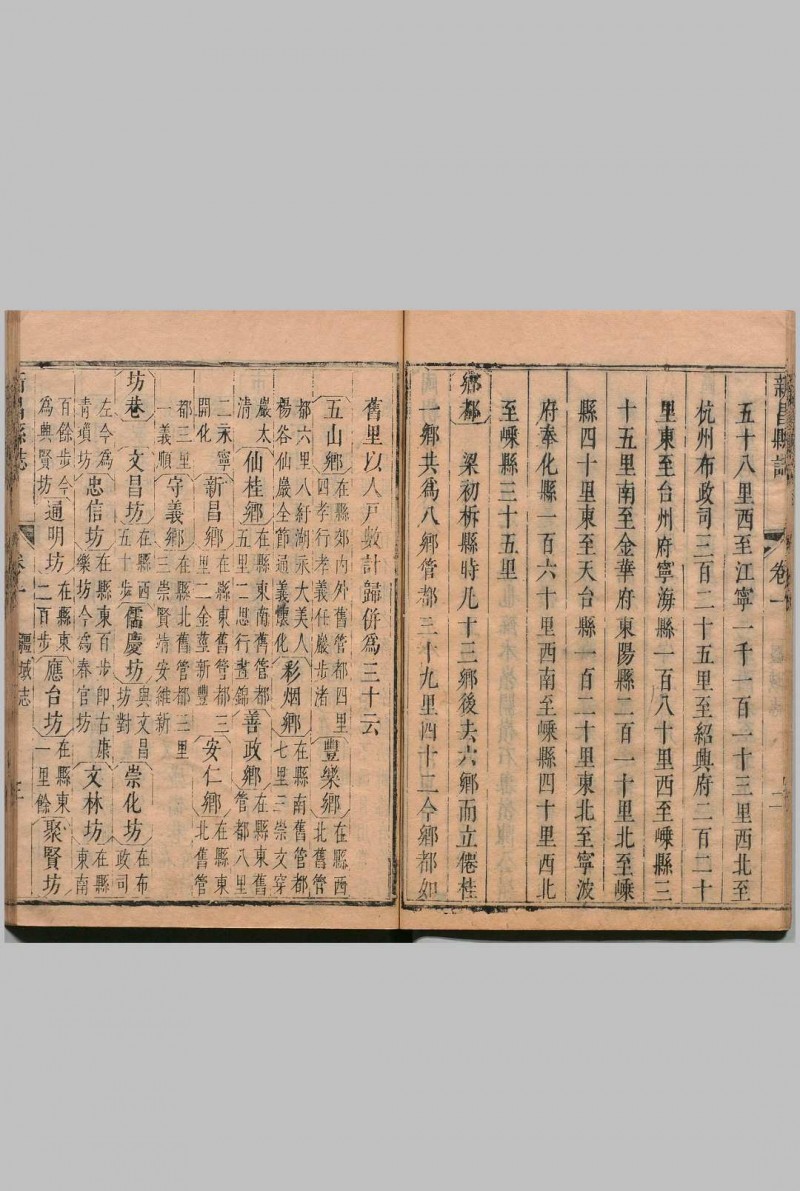 新昌縣誌 卷一 二
五十八里西至江寧一千一百一十三里西北至
杭州布政司三百二十五里至紹興府二百二十
里東至台州府寧海縣一百八十里西至嵊縣三
十五里南至金華府東陽縣二百一十里北至嵊
縣四十里東至天台縣一百二十里東北至寧波
府奉化縣一百六十里西南至嵊縣四十里西北
至嵊縣三十五里
鄉都 梁初析縣時凢十三鄉後去六鄉而立僊桂
一鄉共爲八鄉管都三十九里四十二今鄉都如
舊里以人戶數計歸併爲三十云
五山鄉 在縣郊內外舊管都四里四孝行孝義任巖步渚 豐樂鄉 在縣西北舊管
都六里八紆湖永大美人楊谷仙巖全節通義懷化 彩烟鄉 在縣南舊管都七里三崇文穿
巖太清 仙桂鄉 在縣東南舊管都五里二思行晝錦 善政鄉 在縣東舊管都八里
二永寧開化 新昌鄉 在縣東舊管都三里二金莖新豐 安仁鄉 在縣東北舊管
都三里一義順 守義鄉 在縣北舊管都三里三崇賢靖安維新
坊巷 文昌坊 在縣西五十步 儒慶坊 與文昌坊對 崇化坊 在布政司
左今爲青瑣坊 忠信坊 在縣東百步即古康樂坊今爲春官坊 文林坊 在縣東南
百餘步今爲興賢坊 通明坊 在縣東二百步 應台坊 在縣東一里餘 聚賢坊
新昌縣誌 卷一 疆域志